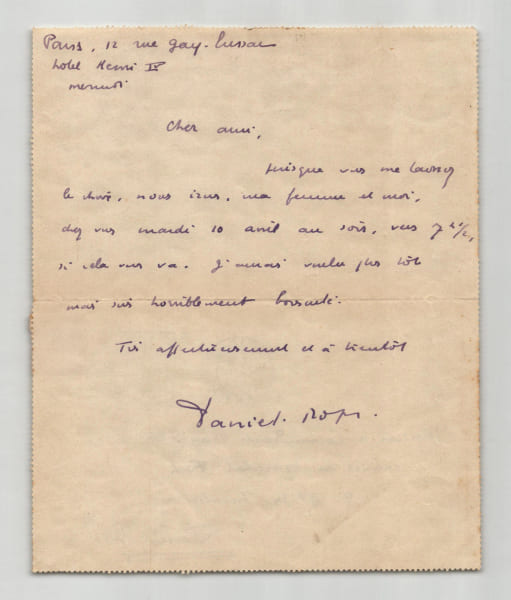 Paris, 12 rue Gay-Lussac
hotel Henri IV
mercredi
Cher ami,
puisque vous me laissez
le choix, nous irons, ma femme et moi,
chez vous mardi 10 avril au soir, vers 7 h 1/2,
si cela vous va. J'aurais voulu plus tôt
mais suis horriblement bousculé.
Très affectueusement et à bientôt
Daniel-Rops.